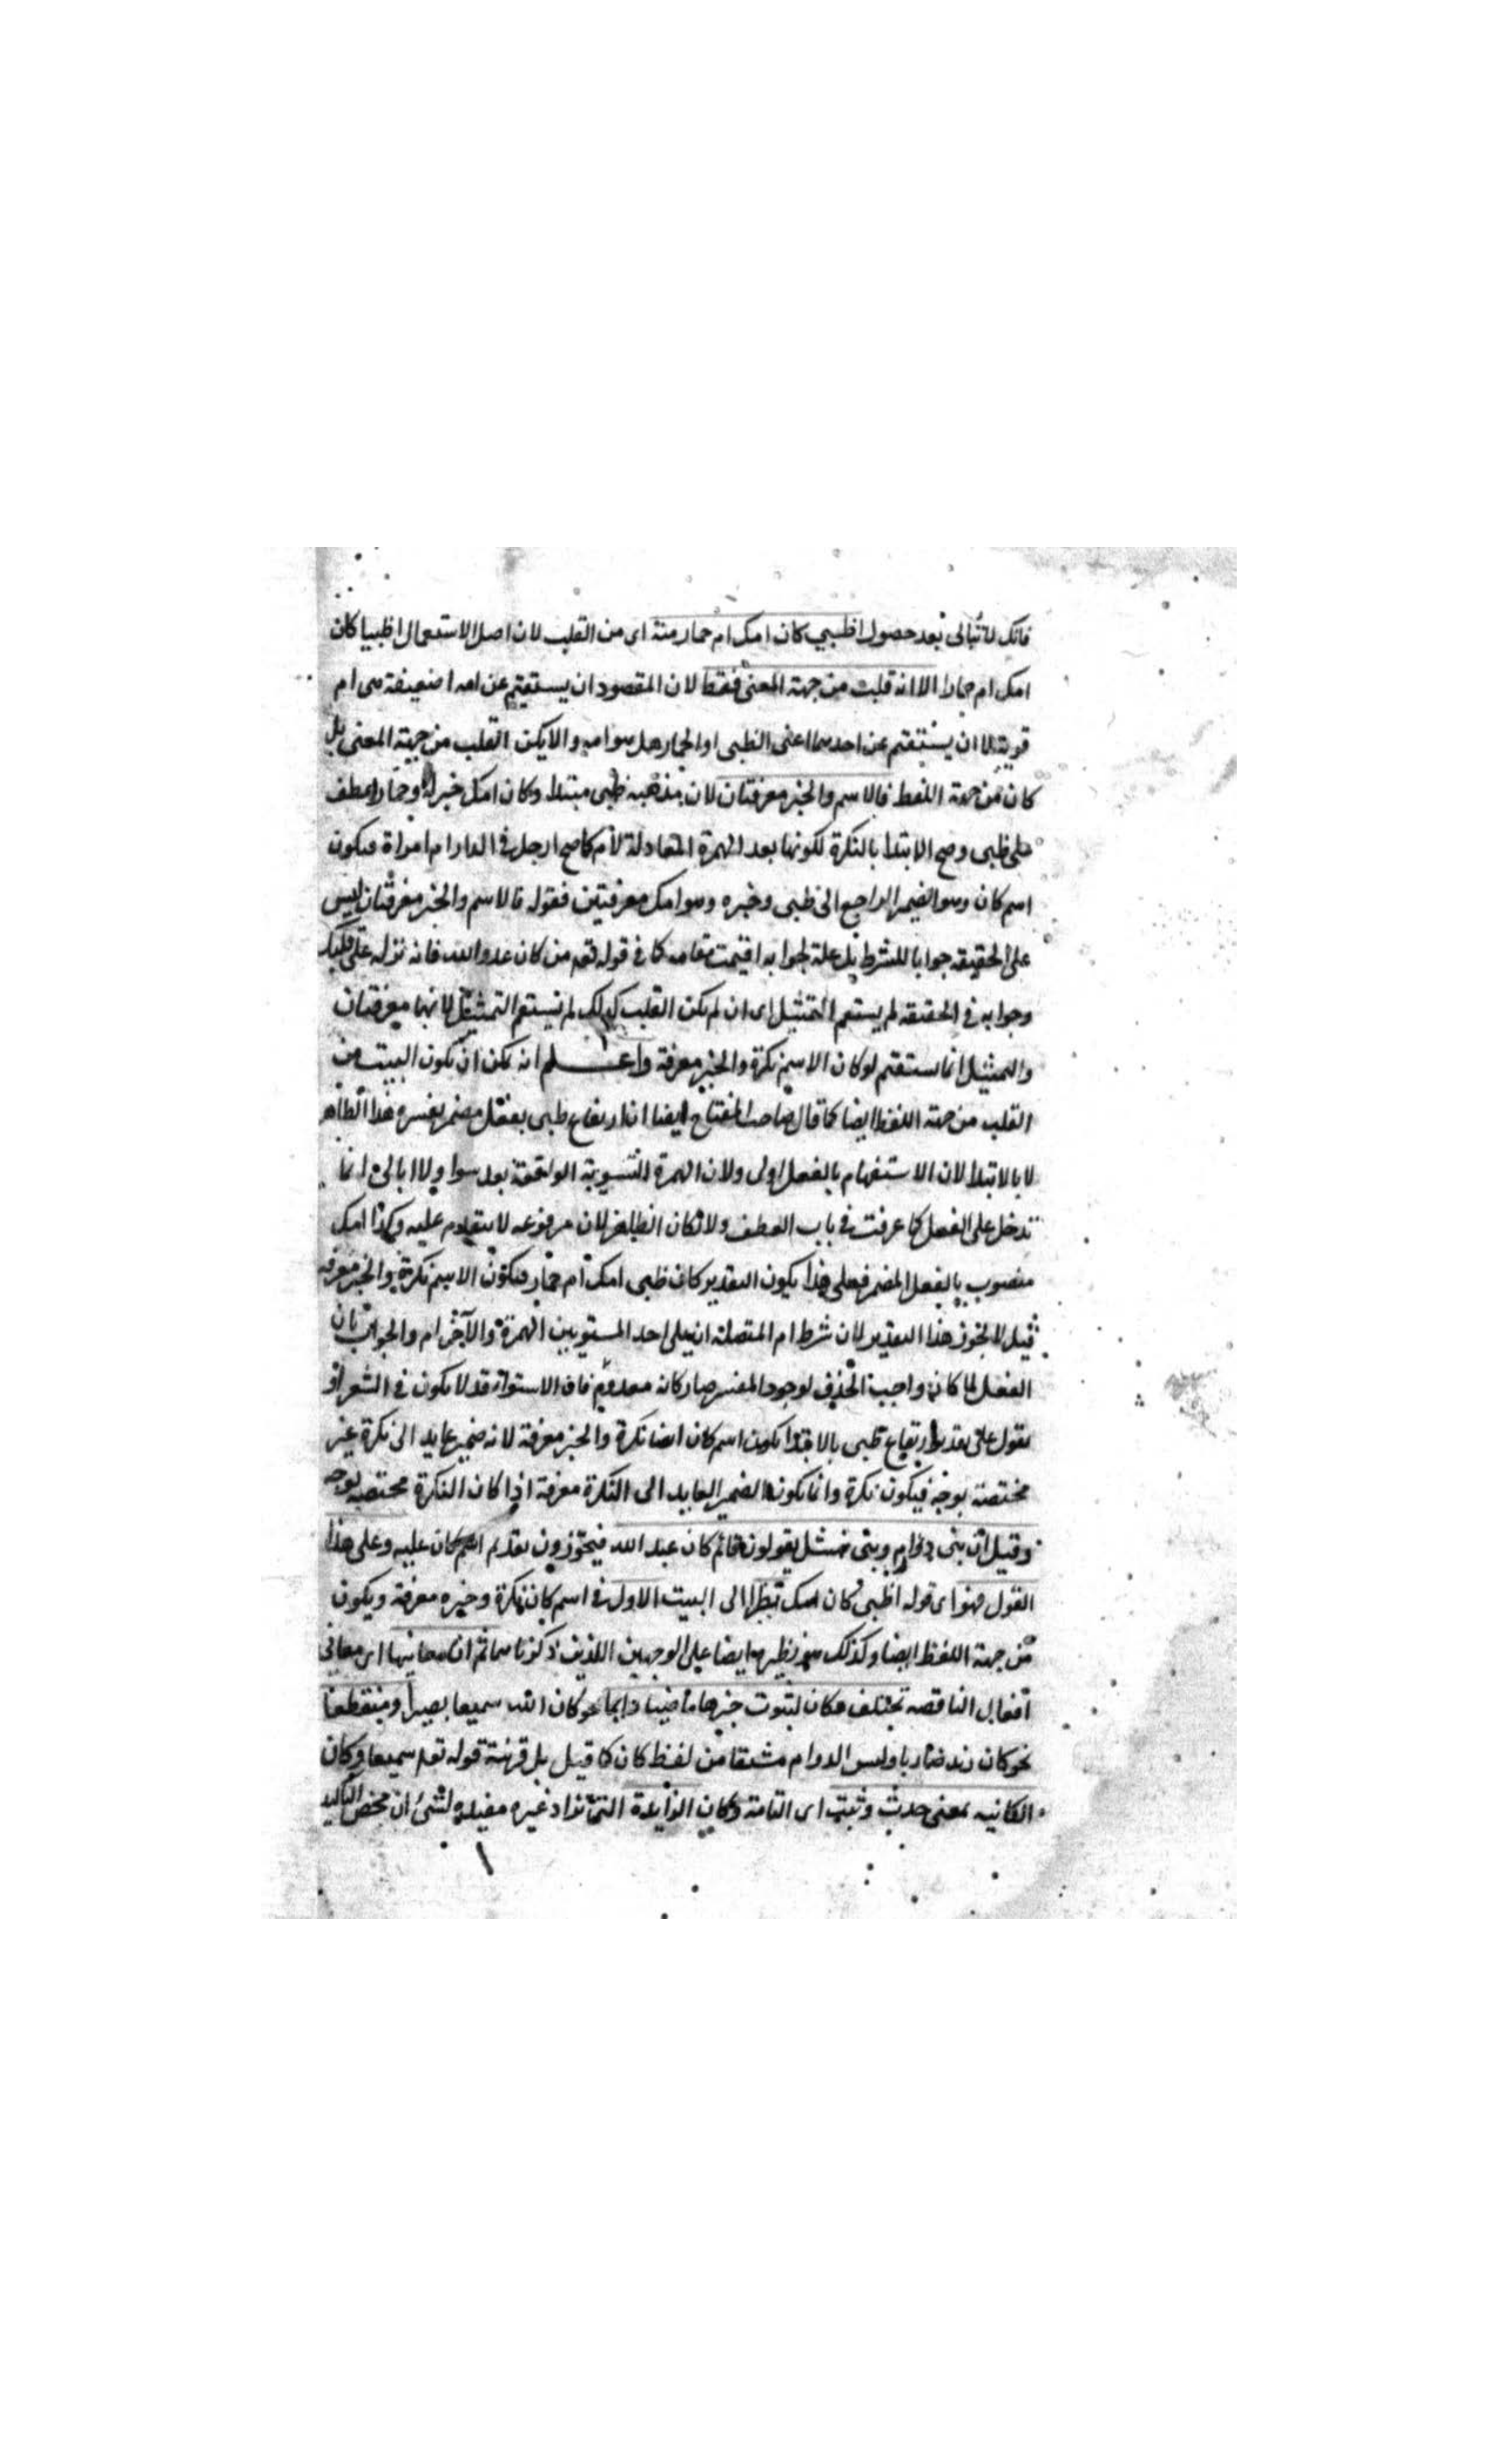 فانك لا تبالى بعد حصول اظبي كان امك ام حمار منه اى من القلب لان اصل الاستعمال اظبيا كان
امك ام حمارا الا انه قلبت من جهة المعنى فقط لان المقصود ان يستفهم عن امه اضعيفة هى ام
قوية لا ان يستفهم عن احدهما اعنى الظبى او الحمار هل هو امه والا يكن القلب من جهة المعنى بل
كان من جهة اللفظ فالاسم والخبر معرفتان لان مذهبه ظبى مبتدا وكان امك خبرا وحمار عطف
على ظبى وصح الابتدا بالنكرة لكونها بعد الهمزة المعادلة لأم كما صح ارجل فى الدار ام امراة فيكون
اسم كان وهو الضمير الراجع الى ظبى وخبره وهو امك معرفتين فقوله فالاسم والخبر معرفتان ليس
على الحقيقه جوابا للشرط بل علة لجوابه اقيمت مقامه كما فى قوله تعم من كان عدوا لله فانه نزله على قلبك
وجوابه فى الحقيقه لم يستقم التمثيل اى ان لم يكن القلب كذلك لم يستقم التمثيل لانهما معرفتان
والتمثيل انما يستقيم لو كان الاسم نكرة والخبر معرفة واعلم انه يمكن ان يكون البيت من
القلب من جهة اللفظ ايضا كما قال صاحب المفتاح ايضا ان ارتفاع ظبى بفعل مضمر يفسره هذا الظاهر
لا بالابتدا لان الاستفهام بالفعل اولى ولان الهمزة التسوية الواقعة بعد سوا ولا ابالى انما
تدخل على الفعل كما عرفت فى باب العطف ولا لكان الظاهر لان مرفوعه لا يتقدم عليه وكذا امك
منصوب بالفعل المضمر فعلى هذا يكون التقدير كان ظبى امك ام حمار فيكون الاسم نكرة والخبر معرفة
قيل لا يجوز هذا التقدير لان شرط ام المتصلة ان يلى احد المستويين الهمزة والآخر ام والجواب بان
الفعل لما كان واجب الحذف لوجود المفسر صار كانه معدوم فان الاستوا قد لا يكون فى الشعر او
نقول على تقدير ارتفاع ظبى بالابتدا يكون اسم كان ايضا نكرة والخبر معرفة لانه ضمير عايد الى نكرة غير
مختصة بوجه فيكون نكرة وانما يكون الضمير العايد الى النكرة معرفة اذا كان النكرة مختصه بوجه
وقيل ان بنى وبنى نهشل يقولون قائم كان عبد الله فيجوزون تقديم اسم كان عليه وعلى هذا
القول فهو اى قوله اظبى كان امك نظير الى البيت الاول فى اسم كان نكرة وخبره معرفة ويكون
من جهة اللفظ ايضا وكذلك نظيرها ايضا على الوجهين اللذين ذكرناهما ثم ان معانيها اى معانى
افعال الناقصة تختلف فكان لثبوت خبرها ماضيا دايما نحو كان الله سميعا بصيرا ومنقطعا
نحو كان زيد ضاربا وليس الدوام مشتقا من لفظ كان كما قيل بل قرينة قوله تعم سميعا وكان
الكائنيه بمعنى حدث وثبت اى التامة وكان الزايدة التى تزاد غير مفيدة لشئ الا محض التاكيد